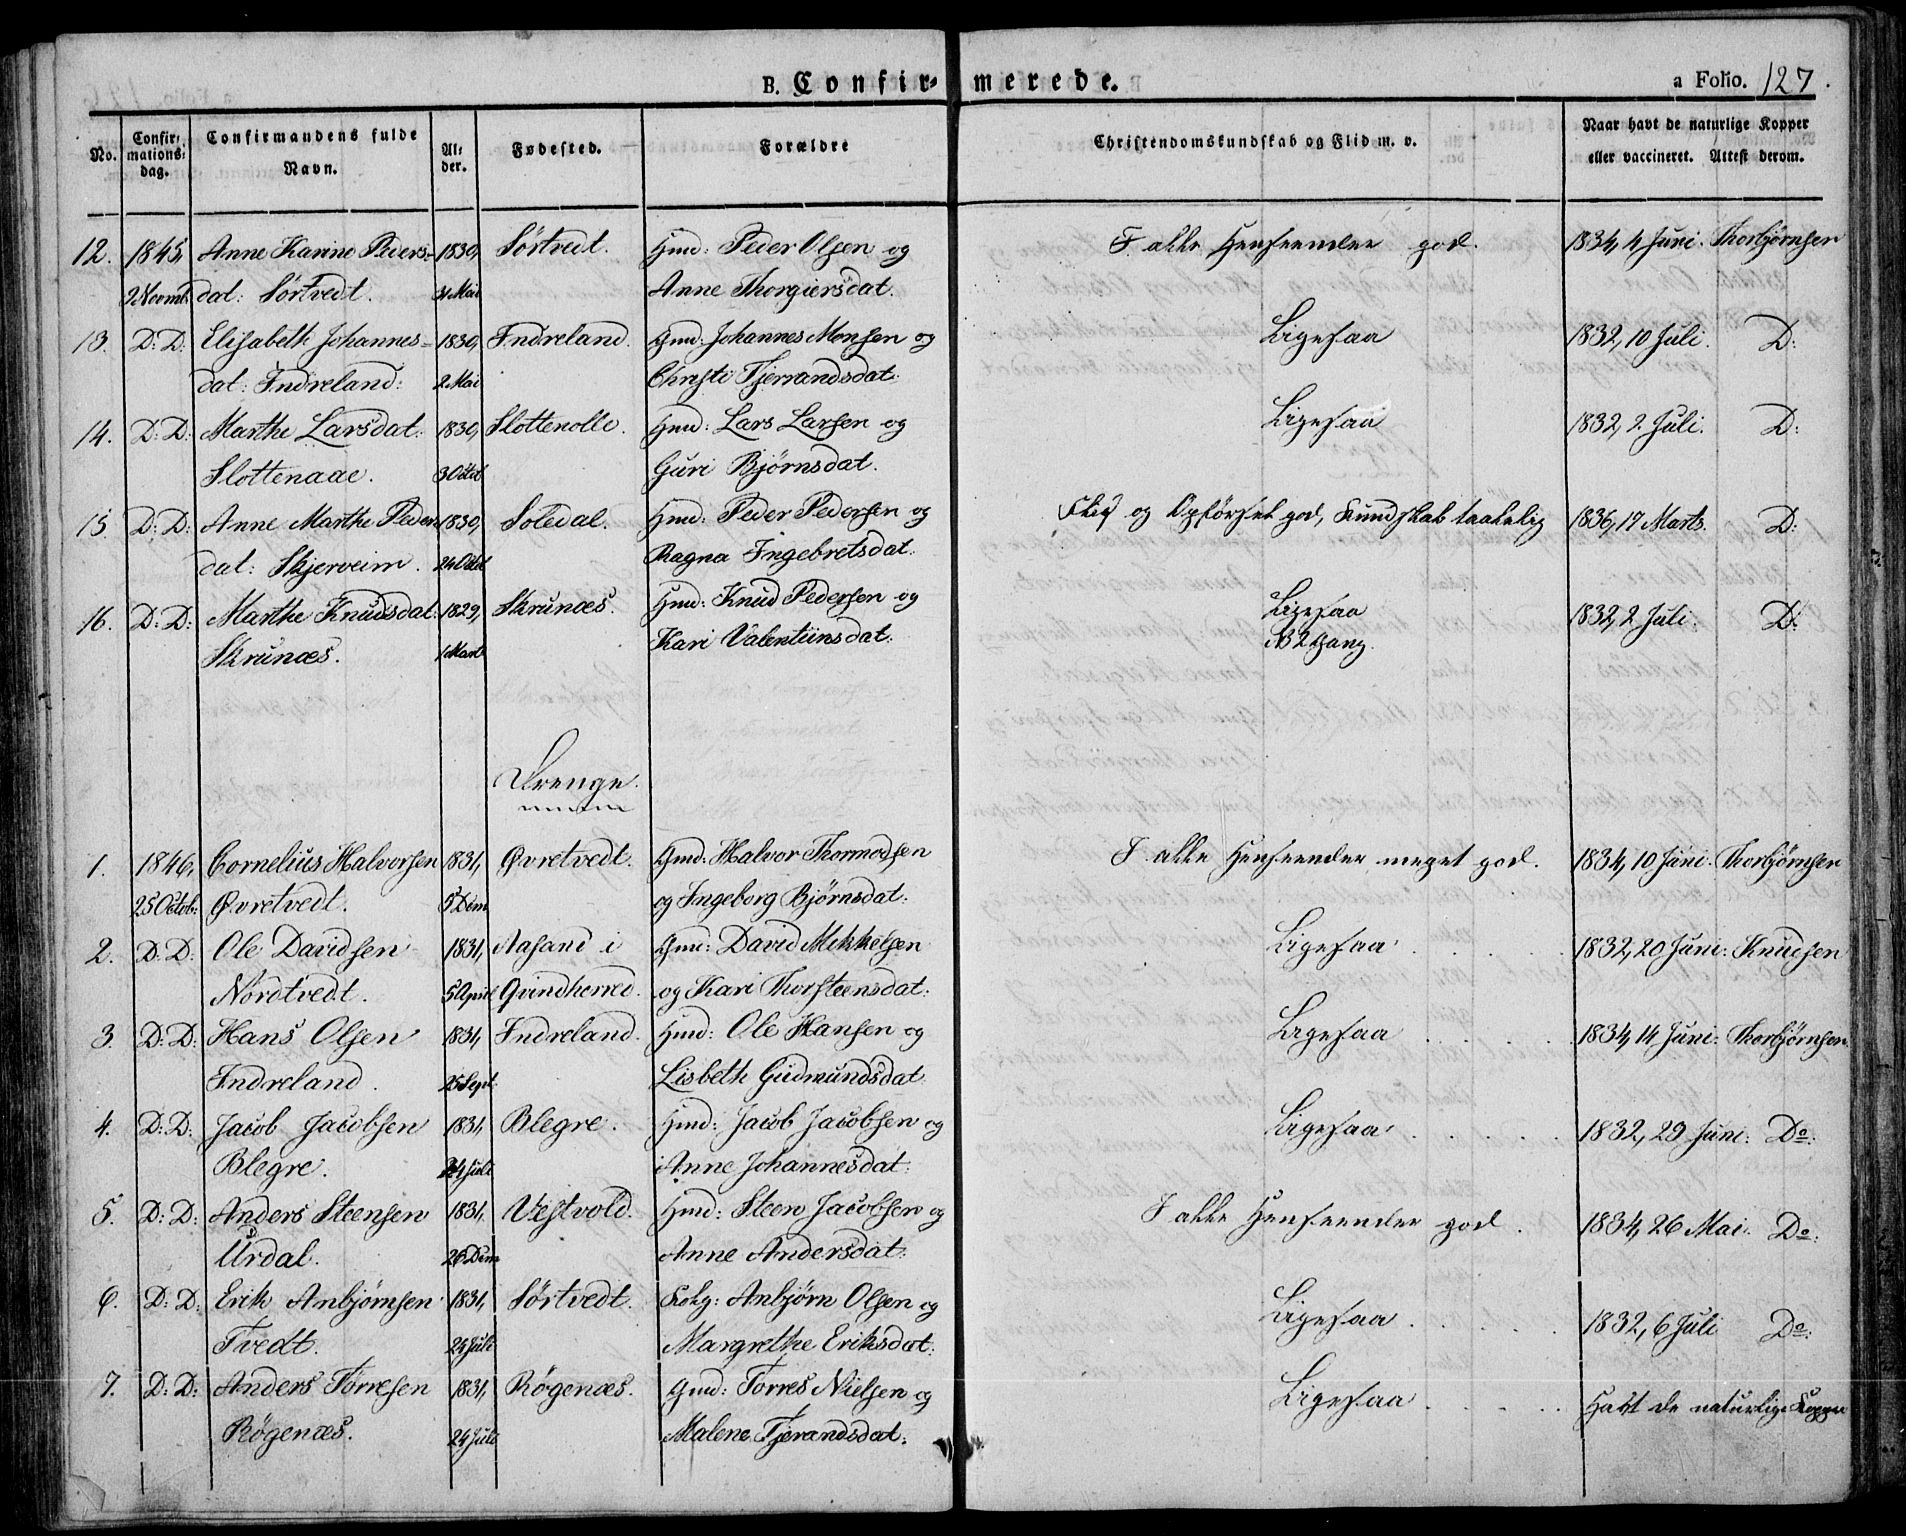 B. Confirmerede. a Folio. 127.
No. Confirmationsdag. Confirmandens fulde Navn. Alder. Fødested. Forældre Christendomskundskab og Flid m. v. Naar havt de naturlige Kopper eller vaccineret. Attest derom.
12. 1845, Anne Karine Peders- 1830, Sørtvedt. Gmd: Peder Olsen og I alle Henseender god. 1834, 4 Juni. Thorbjørnsen
2 Novmb. dat: Sørtvedt. Mai Anne Thorgiersdat.
13. D: D: Elisabeth Johannes- 1830, Indreland. Gmd: Johannes Monsen og Ligesaa 1832, 10 Juli. D:
dat: Indreland: 2 Mai Christi Tjerrandsdat:
14. D: D: Marthe Larsdat: 1830, Slottenolle. Gmd: Lars Larsen og Ligesaa 1832, 2 Juli. D:
Slottenaae. 3 Octob Guri Bjørnsdat.
15 D: D: Anne Marthe Peders 1830, Soledal. Gmd: Peder Pedersen og Flid og Opførsel god, Kundskab taalelig 1836, 17 Marts. D:
dat: Skjerveim. 24 Octob Ragna Ingebretsdat.
16. D: D: Marthe Knudsdat: 1829, Skrunæs. Gmd: Knud Pedersen og Ligesaa 1832, 2 Juli. D:
Skrunæs. 1 Marts Kari Valentinsdat: NB 2 Gang.
Drenge.
1. 1846, Cornelius Halvorsen 1831, Øvretvedt. Gmd: Halvor Thormodsen I alle Henseender meget god. 1834, 10 Juni. Thorbjørnsen
25 Octob: Øvretvedt. 5 Dcm og Ingeborg Bjørnsdat:
2. D: D: Ole Davidsen 1831, Aasand i Gmd: David Mikkelsen Ligesaa 1832, 20 Juni: Knudsen
Nordtvedt. 5 April Qvindherred. og Kari Thorsteensdat:
3. D: D: Hans Olsen 1831, Indreland. Gmd: Ole Hansen og Ligesaa 1834, 14 Juni: Thorbjørnsen
Indreland. 25 Sept: Lisbeth Gudmundsdat
4. D: D: Jacob Jacobsen 1831, Blegre. Gmd: Jacob Jacobsen og Ligesaa 1832, 29 Juni: Do:
Blegre. 24 Juli Anne Johannesdat:
5. D: D: Anders Steensen 1831, Vestvold. Gmd: Steen Jacobsen og I alle Henseender god. 1834, 26 Mai. Do:
Urdal. 26 Dcm Anne Andersdat:
6. D: D: Erik Anbjørnsen 1831, Sørtvedt. Anbjørn Olsen og Ligesaa 1832, 6 Juli Do:
Tvedt. 24 Juli Margrethe Eriksdat:
7. D: D: Anders Tørresen 1831, Røgenæs. Gmd: Torres Nielsen og Ligesaa Havt de naturlige Kopper
Røgenæs. 24 Juli Malene Tjerandsdat: